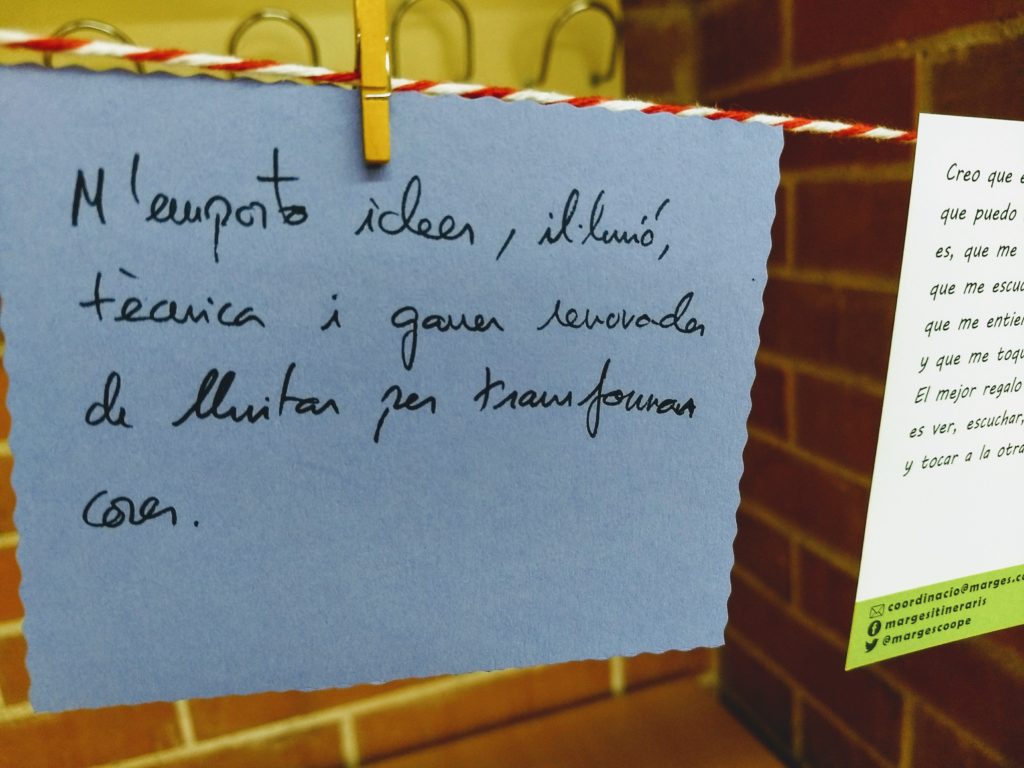 M'emporto idees, il·lusió,
tècnica i ganes renovades
de lluitar per transformar
coses.
Creo que e
que puedo
es, que me
que me escuc
que me entien
y que me toqu
El mejor regalo
es ver, escuchar,
y tocar a la otra
coordinacio@marges.co
margesitineraris
@margescoope